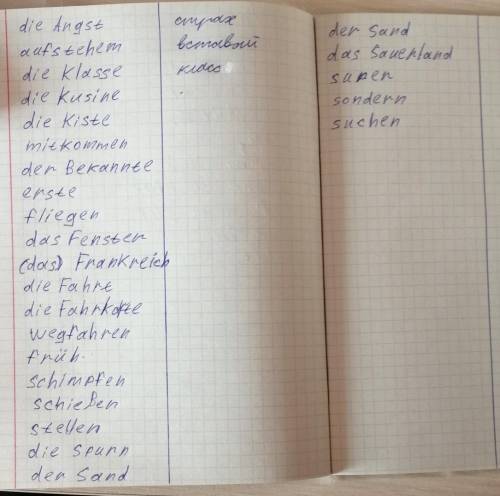 die Angst страх
aufstehem вставой
die Klasse класс
die Kusine
die Kiste
mitkommen
der Bekannte
erste
fliegen
das Fenster
(das) Frankreich
die Fahrt
die Fahrkarte
wegfahren
früh
schimpfen
schießen
stellen
die Spurn
der Sand
der Sand
das Sauerland
super
sondern
suchen